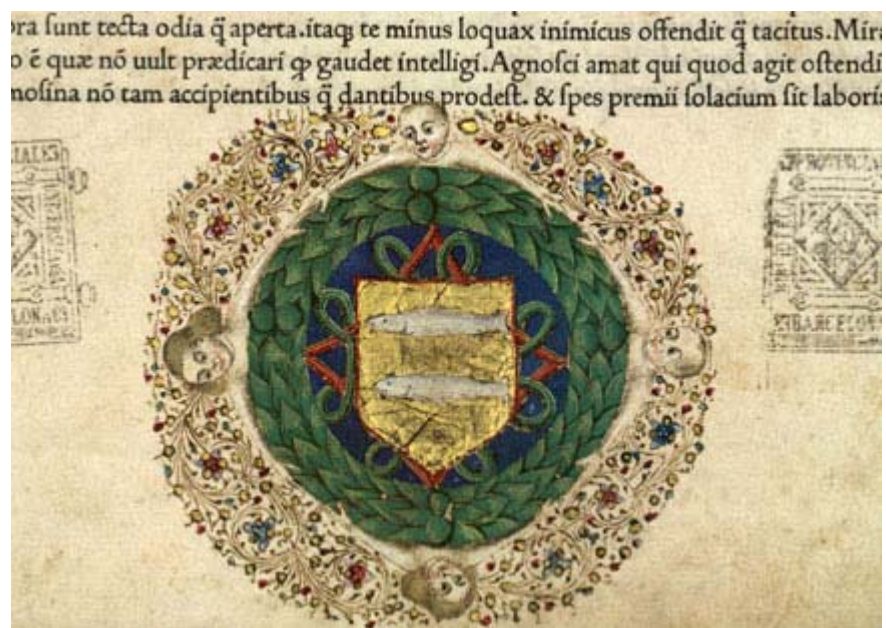 ora ſunt tecta odia q̃ aperta.itaq; te minus loquax inimicus offendit q̃ tacitus.Mira
o ē quæ nõ uult prædicari ꝙ gaudet intelligi.Agnoſci amat qui quod agit oſtendi
moſina nõ tam accipientibus q̃ dantibus prodeſt. & ſpes premii ſolacium ſit laboris
BARCELONA